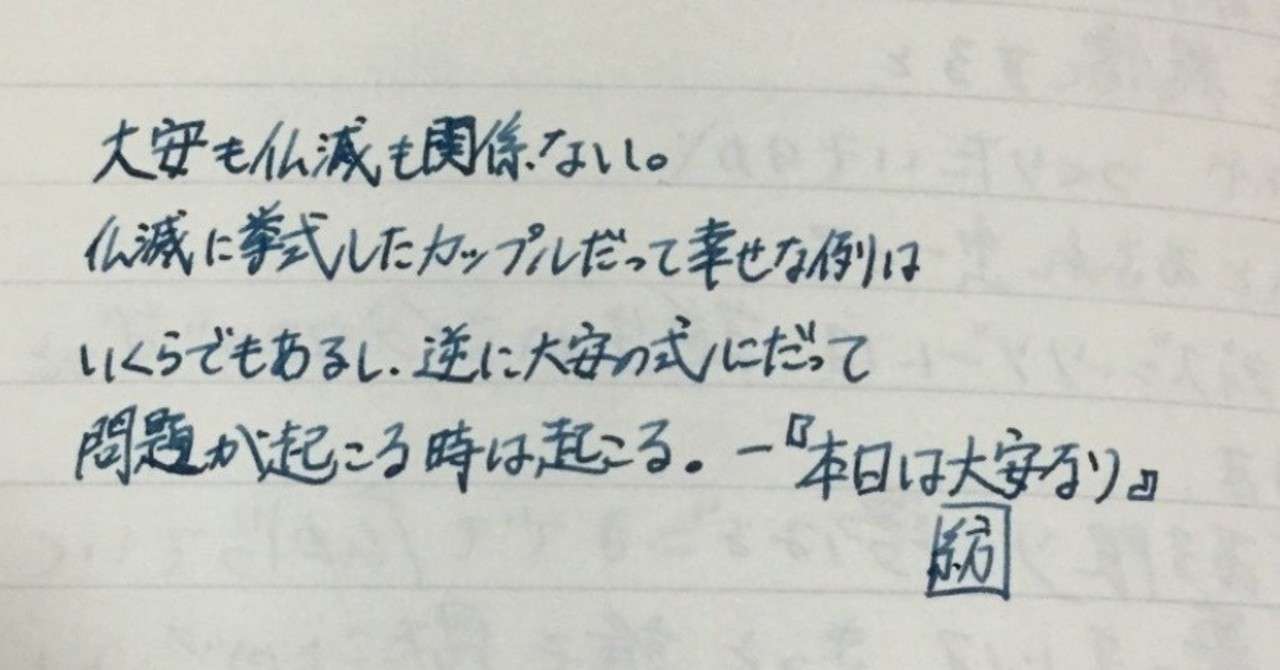 大安も仏滅も関係ない。
仏滅に挙式したカップルだって幸せな例は
いくらでもあるし、逆に大安の式にだって
問題が起こる時は起こる。―『本日は大安なり』
紡